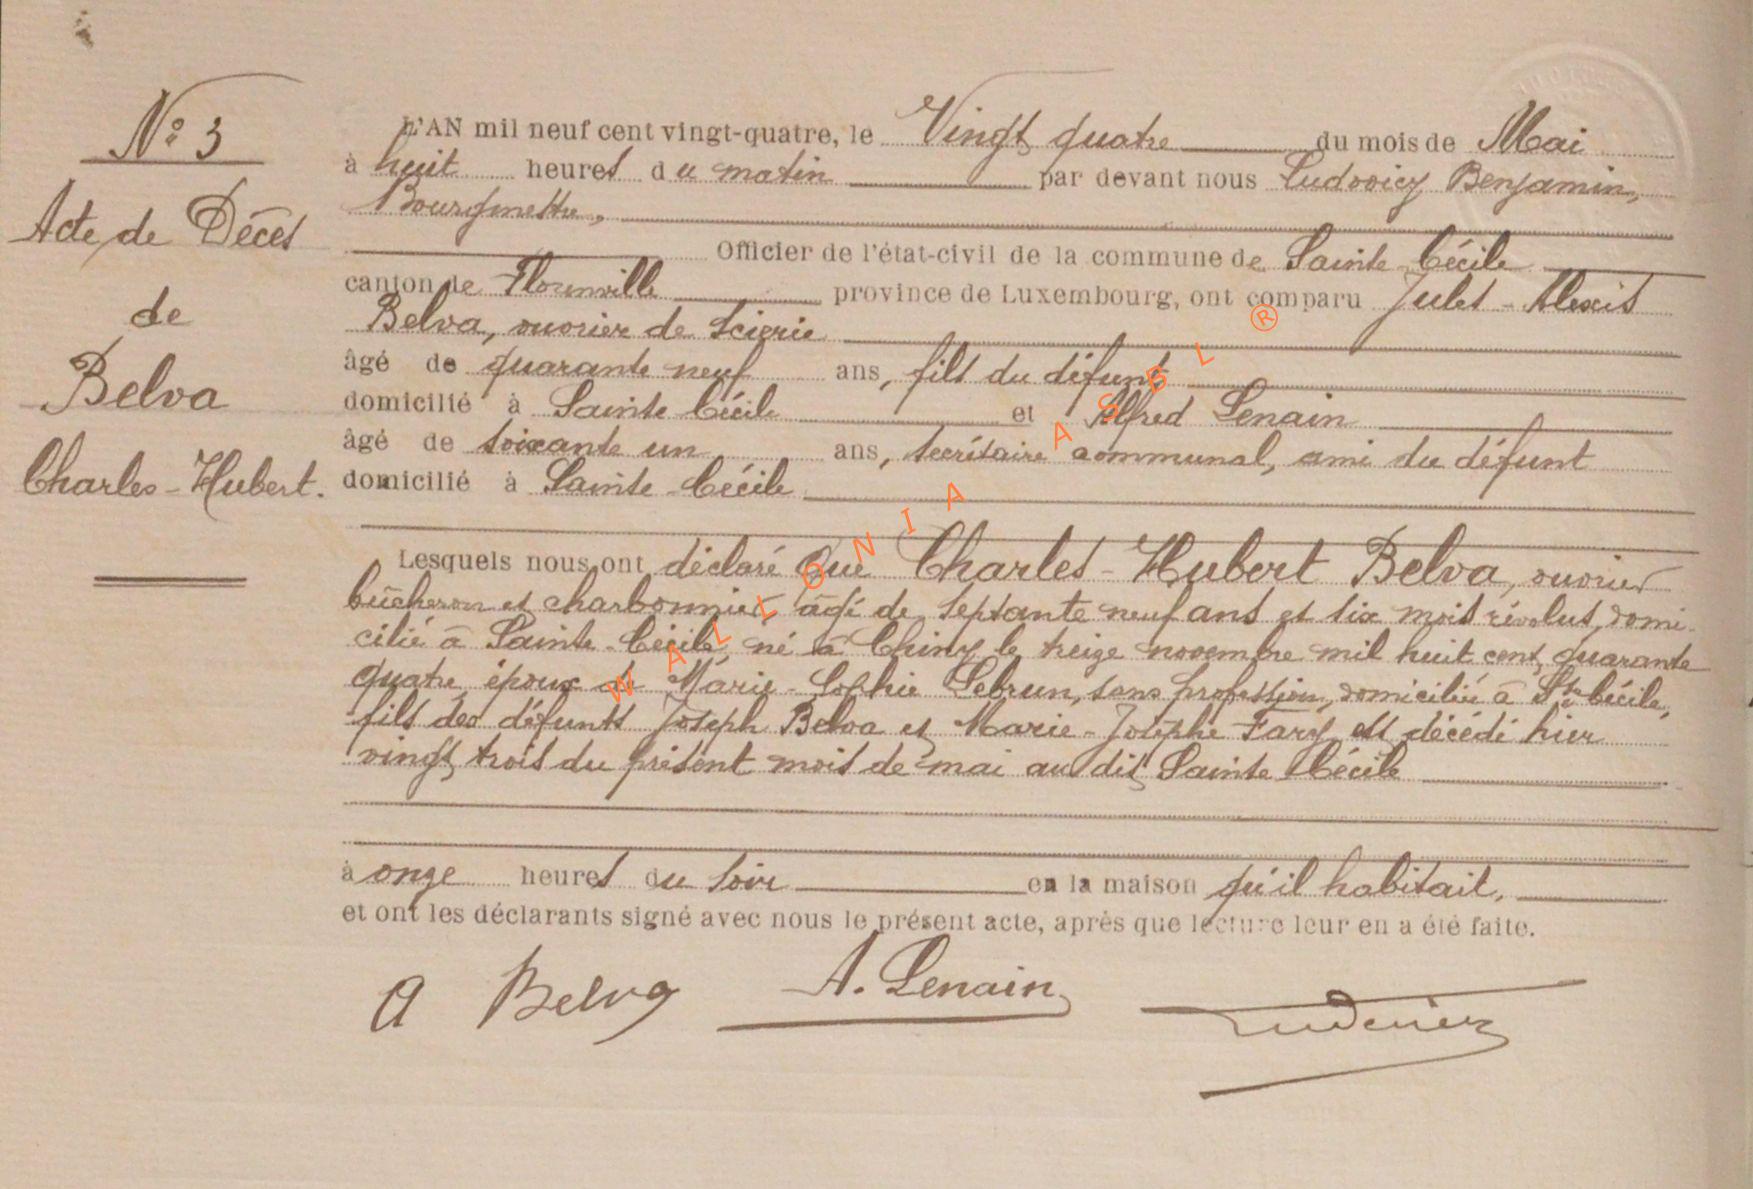 Nº 3
Acte de Décès
de
Belva
Charles-Hubert.
L'AN mil neuf cent vingt-quatre, le Vingt quatre du mois de Mai
à huit heures du matin par devant nous Ludovicy Benjamin,
Officier de l'état-civil de la commune de Sainte Cécile
canton de Florenville province de Luxembourg, ont comparu Jules-Alexis
Belva, ouvrier de scierie
âgé de quarante neuf ans, fils du défunt
domicilié à Sainte Cécile et Alfred Lenain
âgé de soixante un ans, secrétaire communal, ami du défunt
domicilié à Sainte-Cécile
Lesquels nous ont déclaré que Charles-Hubert Belva, ouvrier
bûcheron et charbonnier âgé de septante neuf ans et six mois révolus, domi-
cilié à Sainte-Cécile, né à Chiny le treize novembre mil huit cent quarante
quatre, époux de Marie-Sophie Lebrun, sans profession, domiciliée à Ste Cécile,
fils des défunts Joseph Belva et Marie-Josèphe Fary, est décédé hier
vingt trois du présent mois de mai au dit Sainte Cécile
à onze heures du soir en la maison qu'il habitait,
et ont les déclarants signé avec nous le présent acte, après que lecture leur en a été faite.
A Belva A. Lenain
WALLONIA ASBL ®